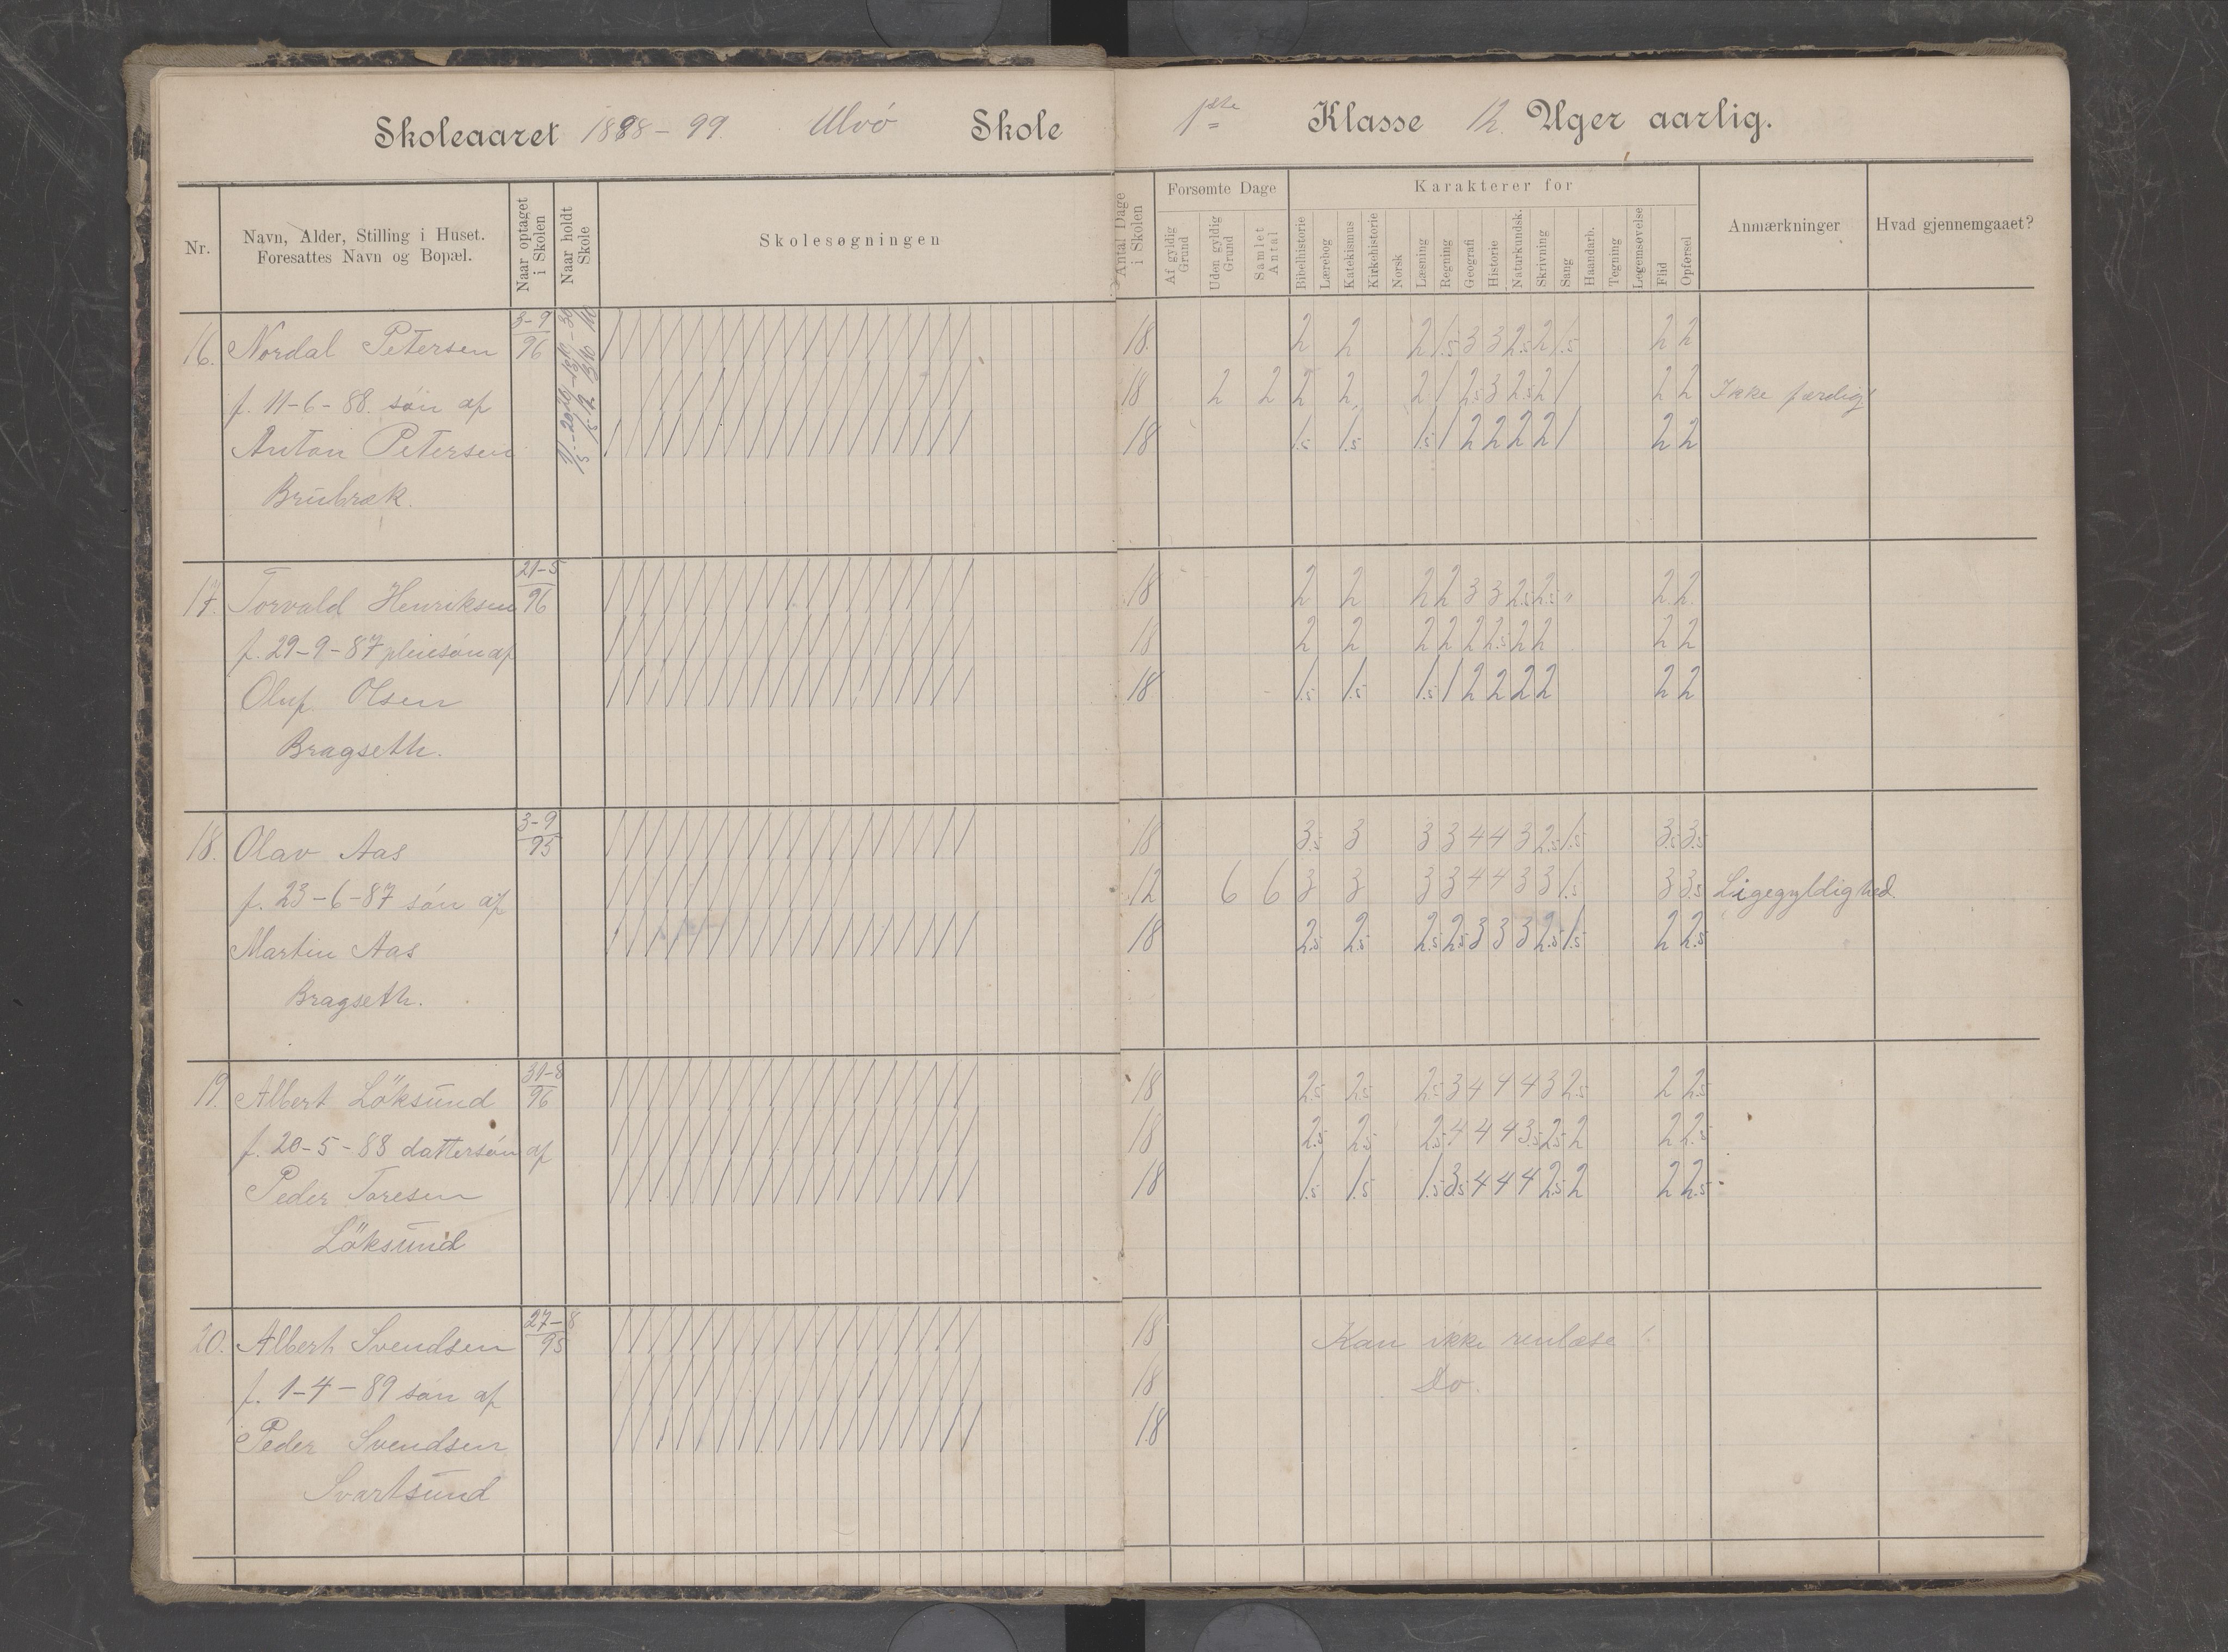 Skoleaaret 1898-99. Ulvö Skole
1ste Klasse 12. Uger aarlig.
Nr.
Navn, Alder, Stilling i Huset.
Foresattes Navn og Bopæl.
Naar optaget
i Skolen
Naar holdt
Skole
Skolesøgningen
Antal Dage
i Skolen
Forsømte Dage
Af gyldig
Grund
Uden gyldig
Grund
Samlet
Antal
Karakterer for
Bibelhistorie
Lærebog
Katekismus
Kirkehistorie
Norsk
Læsning
Regning
Geografi
Historie
Naturkundsk.
Skrivning
Sang
Haandarb.
Tegning
Legemsøvelse
Flid
Opførsel
Anmærkninger
Hvad gjennemgaaet?
16. Nordal Petersen 3-9/96 18. 2 2 2 1.5 3 3 2.5 2 1.5 2 2
f. 11-6-88. sön af 18 2 2 2 2 2 1 2.5 3 2.5 2 1 2 2 Ikke færdig
Anton Petersen 18 1.5 1.5 1.5 1 2 2 2 2 1 2 2
Brubræk.
17. Torvald Henriksen 21-5/96 18 2 2 2 2 3 3 2.5 2.5 2 2
f. 29-9-87 pleiesön af 18 2 2 2 2 2 2.5 2 2 2 2
Oluf Olsen 18 1.5 1.5 1.5 1 2 2 2 2 2 2
Bragseth.
18. Olav Aas 3-9/95 18 3.5 3 3 3 4 4 3 2.5 1.5 3.5 3.5
f. 23-6-87 sön af 12 6 6 3 3 3 3 4 4 3 3 1.5 3 3.5 Ligegyldighed.
Martin Aas 18 2.5 2.5 2.5 2.5 3 3 3 2.5 1.5 2 2.5
Bragseth.
19. Albert Löksund 31-8/96 18 2.5 2.5 2.5 3 4 4 4 3 2.5 2 2.5
f. 20-5-88 dattersön af 18 2.5 2.5 2.5 4 4 4 3.5 2.5 2 2 2.5
Peder Toresen 18 1.5 1.5 1.5 3.5 4 4 4 2.5 2 2 2.5
Löksund
20. Albert Svendsen 27-8/95 18 Kan ikke renlæse!
f. 1-4-89 sön af 18 Do.
Peder Svendsen 18
Svartsund